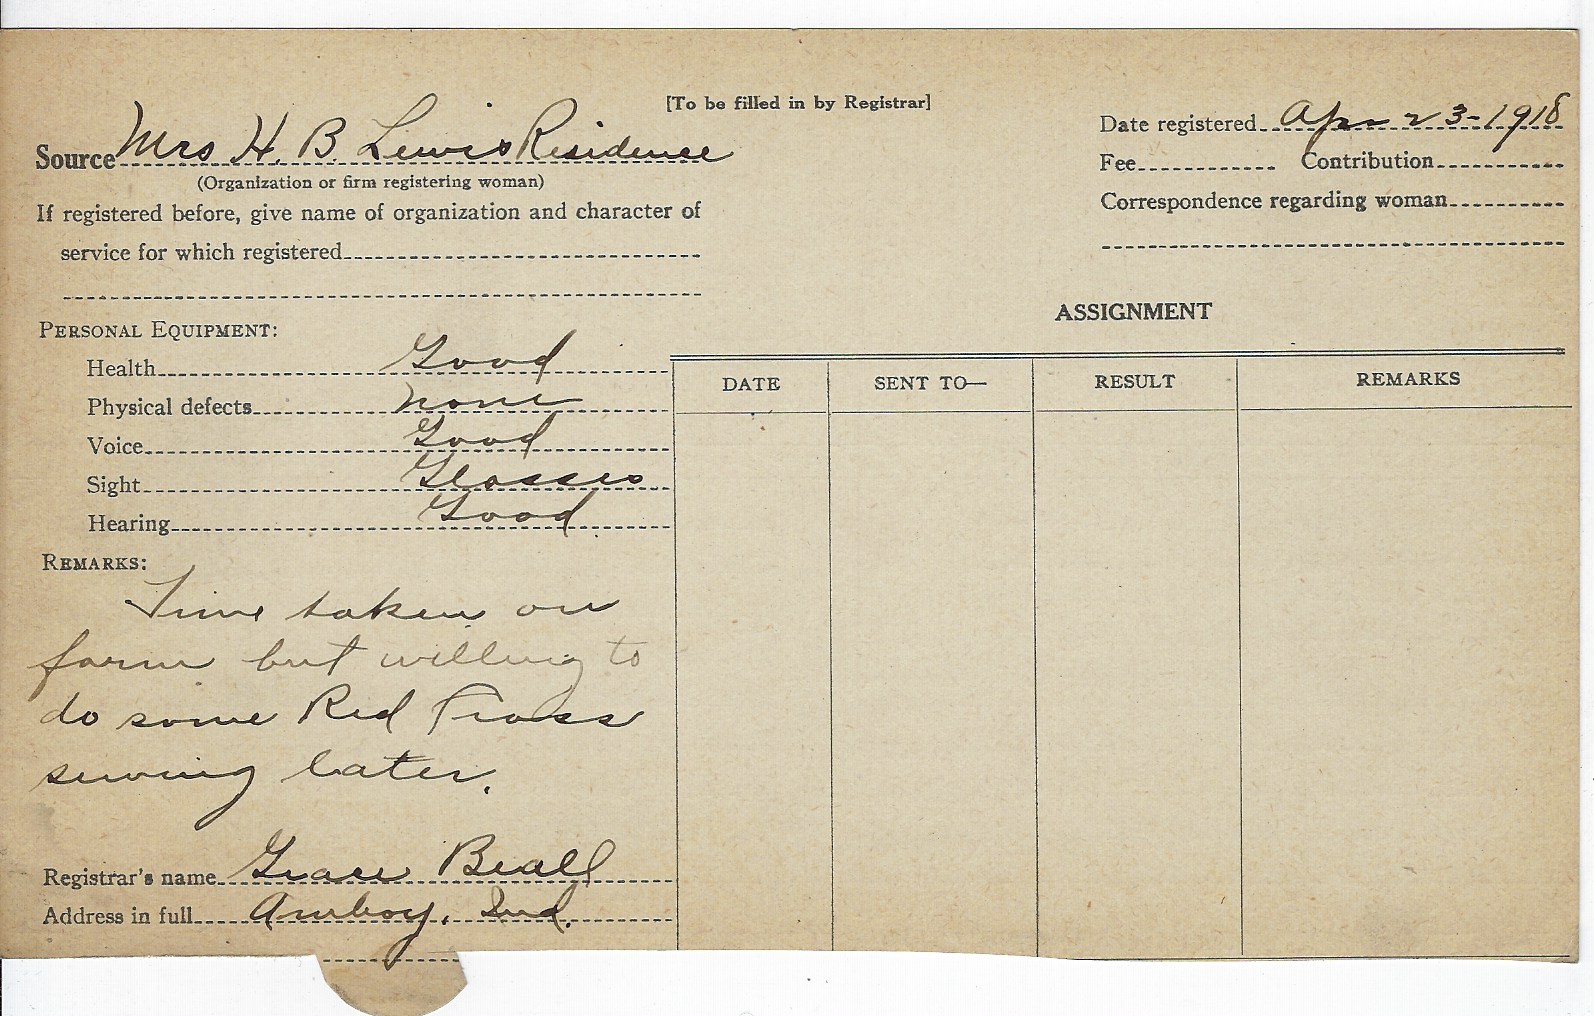 [To be filled in by Registrar]
Source Mrs H. B. Lewis Residence
(Organization or firm registering woman)
If registered before, give name of organization and character of
service for which registered
Date registered Apr 23-1918
Fee Contribution
Correspondence regarding woman
PERSONAL EQUIPMENT:
Health Good
Physical defects none
Voice Good
Sight Glasses
Hearing Good
REMARKS:
Time taken on
farm but willing to
do some Red Cross
sewing later.
Registrar's name Grace Beall
Address in full Amboy, Ind.
ASSIGNMENT
DATE SENT TO— RESULT REMARKS